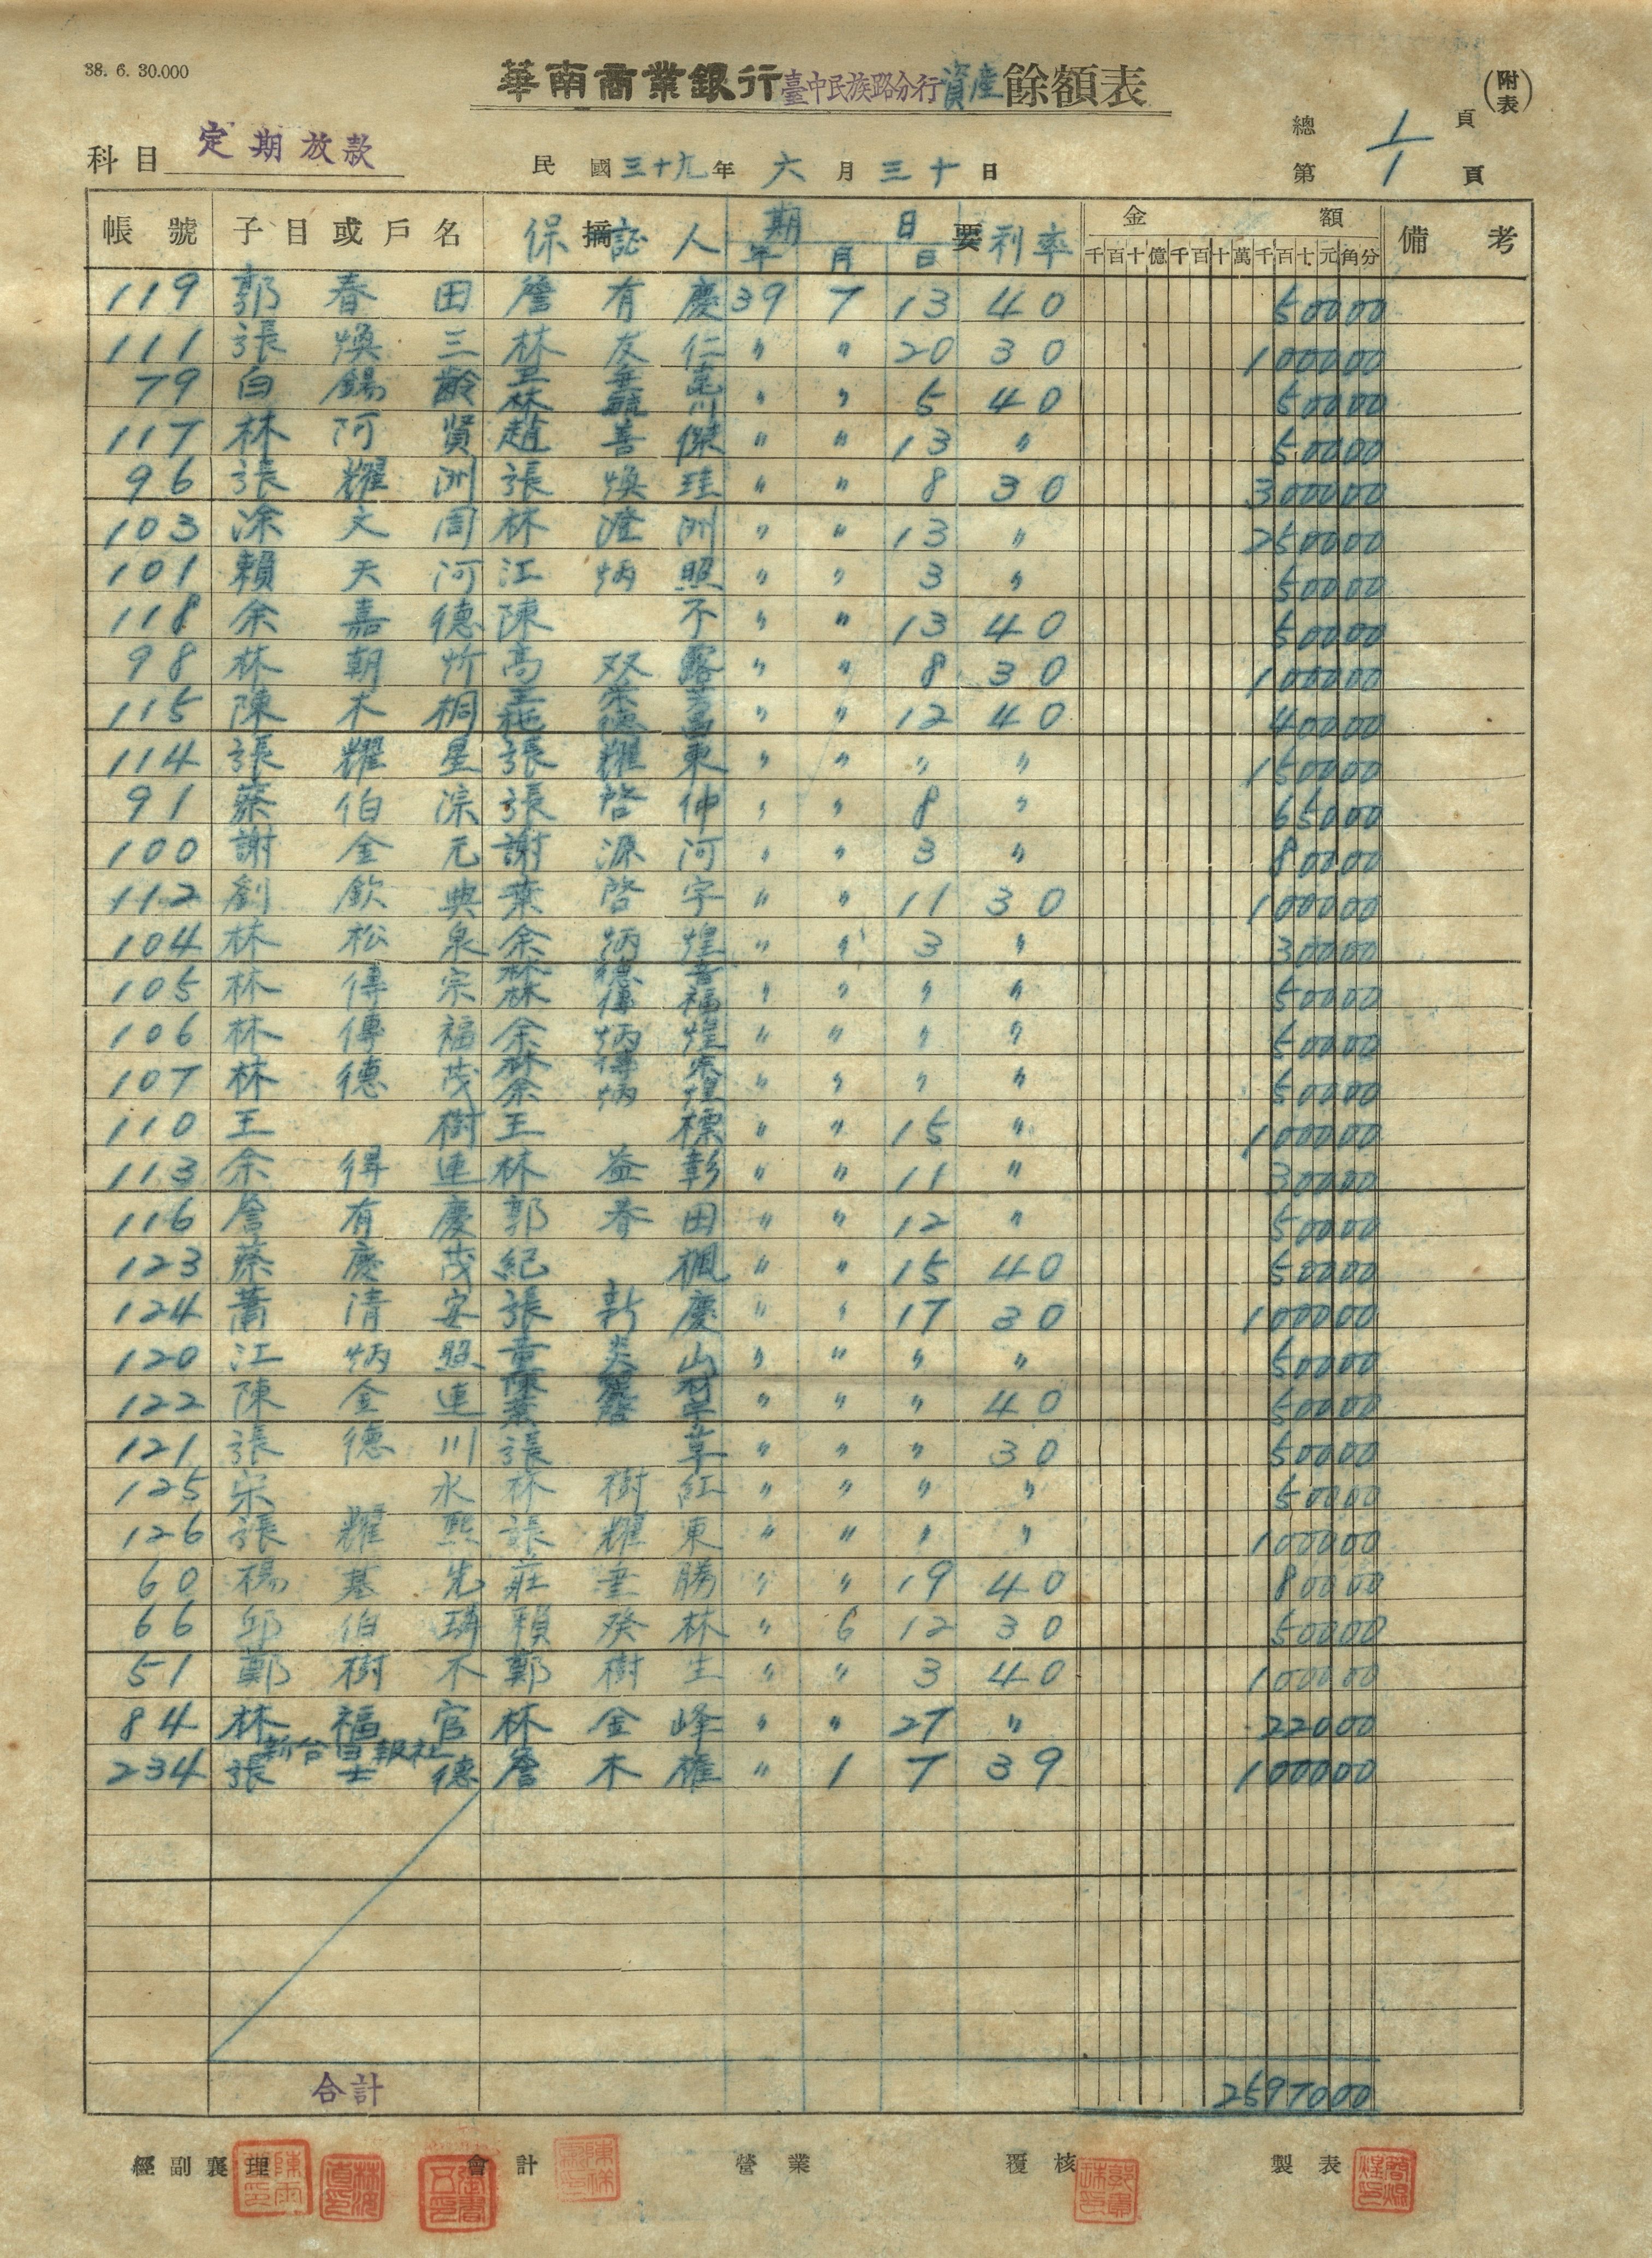 38. 6. 30.000
華南商業銀行臺中民族路分行資產餘額表
(附表)
科目 定期放款
民國三十九年六月三十日
總 1 頁
第 1 頁
帳號 子目或戶名 摘要 保證人 期日 年 月 日 利率 金額 千百十億千百十萬千百十元角分 備考
119 郭春田 詹有慶 39 7 13 40 50000
111 張煥三 林友仁 〃 〃 20 30 100000
79 白錫齡 林 川 〃 〃 5 40 50000
117 林阿賢 趙善傑 〃 〃 13 〃 50000
96 張耀洲 張煥珪 〃 〃 8 30 300000
103 涂文周 林澄洲 〃 〃 13 〃 250000
101 賴天河 江炳照 〃 〃 3 〃 50000
118 余嘉德 陳不 〃 〃 13 40 50000
98 林朝 高双露 〃 〃 8 30 100000
115 陳木桐 〃 〃 12 40 40000
114 張耀星 張耀東 〃 〃 〃 〃 150000
91 蔡伯淙 張啓仲 〃 〃 8 〃 65000
100 謝金元 謝源河 〃 〃 3 〃 80000
112 劉欽典 葉啓宇 〃 〃 11 30 100000
104 林松泉 余炳煌 〃 〃 3 〃 30000
105 林傳宗 林德 林傳福 〃 〃 〃 〃 50000
106 林傳福 余炳煌 〃 〃 〃 〃 50000
107 林德茂 林傳宗 余炳煌 〃 〃 〃 〃 50000
110 王樹 王標 〃 〃 15 〃 100000
113 余得連 林益彰 〃 〃 11 〃 30000
116 詹有慶 郭春田 〃 〃 12 〃 50000
123 蔡慶茂 紀楓 〃 〃 15 40 50000
124 蕭清安 張新慶 〃 〃 17 30 100000
120 江炳照 童炎山 〃 〃 〃 〃 50000
122 陳金連 陳 葉啓宇 〃 〃 〃 40 50000
121 張德川 張草 〃 〃 〃 30 50000
125 宋水 林樹紅 〃 〃 〃 〃 50000
126 張耀熙 張耀東 〃 〃 〃 〃 100000
60 楊基先 莊垂勝 〃 〃 19 40 80000
66 邱伯璘 賴癸林 〃 6 12 30 50000
51 鄭樹不 鄭樹生 〃 〃 3 40 100000
84 林福官 林金峰 〃 〃 27 〃 22000
新台日報社
234 張士德 詹木權 〃 1 7 39 100000
合計 2597000
經副襄理 會計 營業 覆核 製表